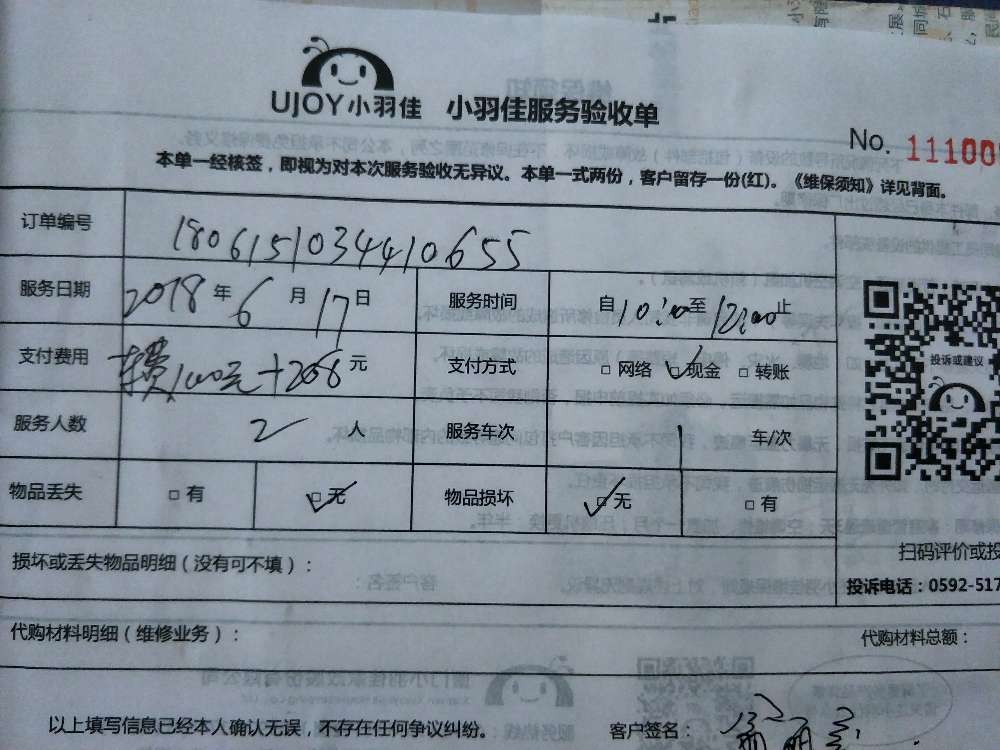 UJOY小羽佳 小羽佳服务验收单
No. 11100
本单一经核签，即视为对本次服务验收无异议。本单一式两份，客户留存一份(红)。《维保须知》详见背面。
订单编号 1806151034410655
服务日期 2018 年 6 月 17 日 服务时间 自 10:00 至 12:00 止
支付费用 100元+208 元 支付方式 □ 网络 ☑ 现金 □ 转账
服务人数 2 人 服务车次 1 车/次
物品丢失 □ 有 ☑ 无 物品损坏 ☑ 无 □ 有
投诉或建议
扫码评价或投
投诉电话：0592-517
损坏或丢失物品明细（没有可不填）：
代购材料明细（维修业务）： 代购材料总额：
以上填写信息已经本人确认无误，不存在任何争议纠纷。 客户签名：